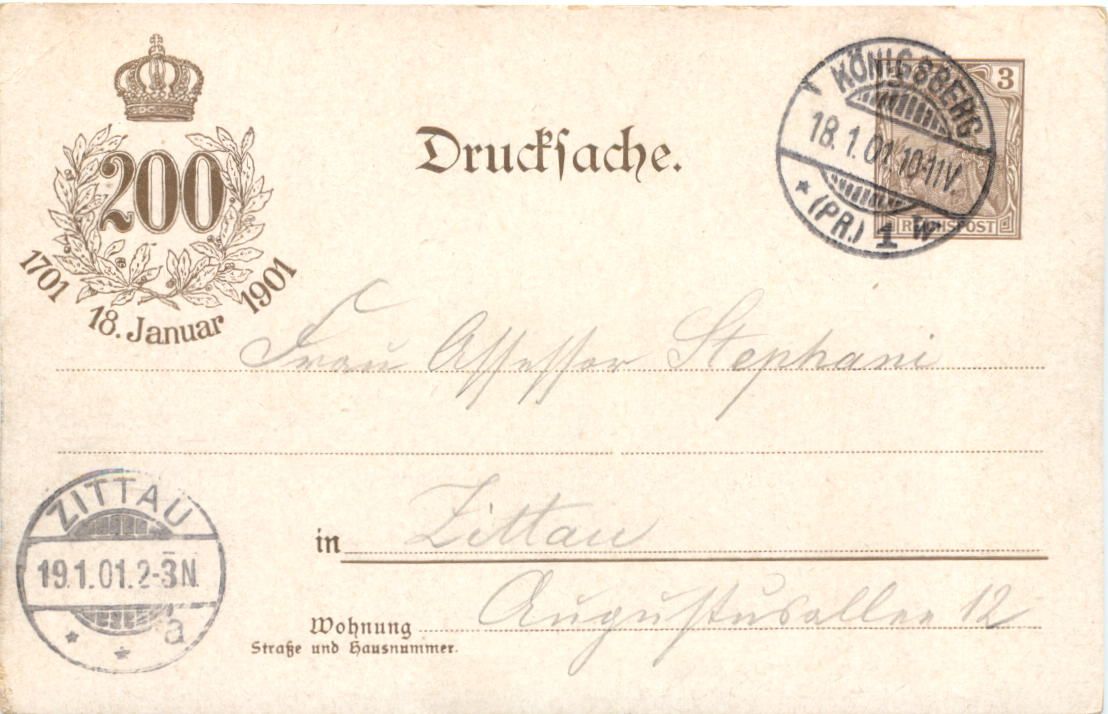 200
1701 18. Januar 1901
Drucksache.
3
REICHSPOST
KÖNIGSBERG
18.1.01.10-11V.
* (PR.) 1 W
Frau Assessor Stephani
in Zittau
Wohnung Augustusallee 12
Straße und Hausnummer.
ZITTAU
19.1.01.2-3N.
* * a